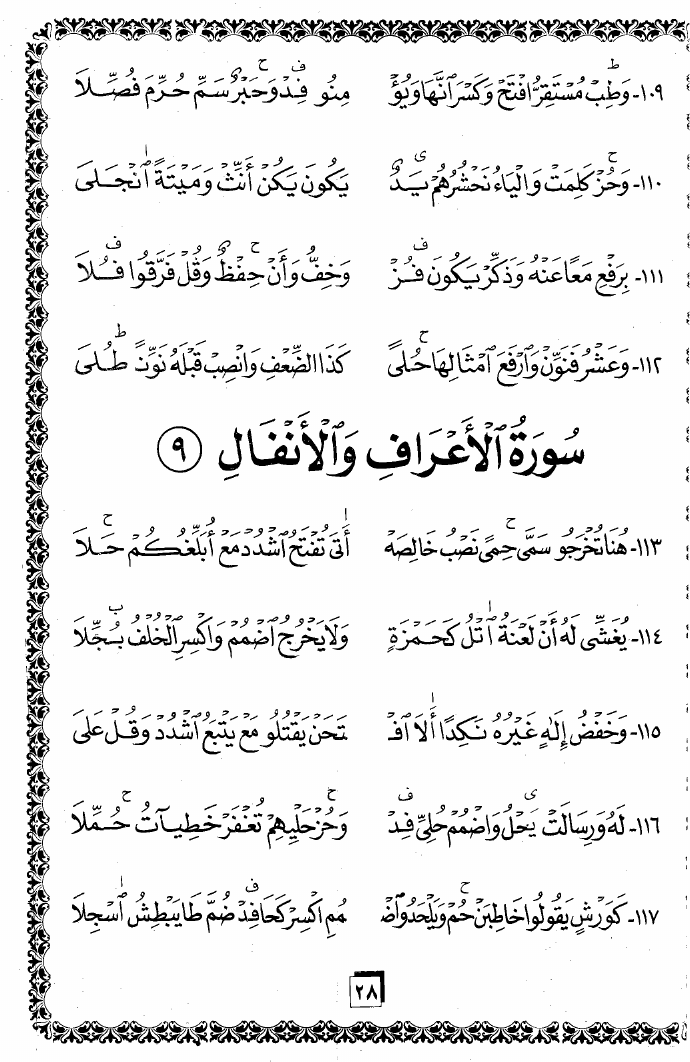 ١٠٩- وَطِبْ مُسْتَقِرُّ افْتَحْ وَكَسْرَ انَّهَا وَيُؤْ مِنُو فِدْ وَحَبْرٌ سَمِّ حُرِّمَ فُصِّلَا
١١٠- وَحُزْ كَلِمَتْ وَالْيَاءُ نَحْشُرُهُمْ يَدٌ يَكُونَ يَكُنْ أَنِّثْ وَمَيْتَةً انْجَلَى
١١١- بِرَفْعٍ مَعًا عَنْهُ وَذَكِّرْ يَكُونَ فُزْ وَخِفُّ وَأَنْ حِفْظٌ وَقُلْ فَرَّقُوا فُلَا
١١٢- وَعَشْرُ فَنَوِّنْ وَارْفَعَ امْثَالِهَا حُلًى كَذَا الضِّعْفِ وَانْصِبْ قَبْلَهُ نَوِّنًا طُلَى
سُورَةُ الْأَعْرَافِ وَالْأَنْفَالِ ٩
١١٣- هُنَا تُخْرَجُو سَمَّى حِمًى نَصْبُ خَالِصَهْ أَتَى تُفْتَحُ اشْدُدْ مَعْ أُبَلِّغُكُمْ حَلَا
١١٤- يُغَشِّي لَهُ أَنْ لَعْنَةُ اتْلُ كَحَمْزَةٍ وَلَا يَخْرُجُ اضْمُمْ وَاكْسِرِ الْخُلْفُ بُجِّلَا
١١٥- وَخَفْضُ إِلَهٍ غَيْرُهُ نَكِدًا أَلَا افْـ ـتَحَنْ يَقْتُلُو مَعْ يَتْبَعُ اشْدُدْ وَقُلْ عَلَى
١١٦- لَهُ وَرِسَالَتْ يَحْلُ وَاضْمُمْ حُلِيِّ فِدْ وَحُزْ حَلْيِهِمْ تُغْفَرْ خَطِيئَاتُ حُمِّلَا
١١٧- كَوَرْشٍ يَقُولُوا خَاطِبَنْ حُمْ وَيَلْحَدُو اضْـ ـمُمِ اكْسِرْ كَحَا فِدْ ضُمَّ طَا يَبْطِشُ اسْجِلَا
٢٨